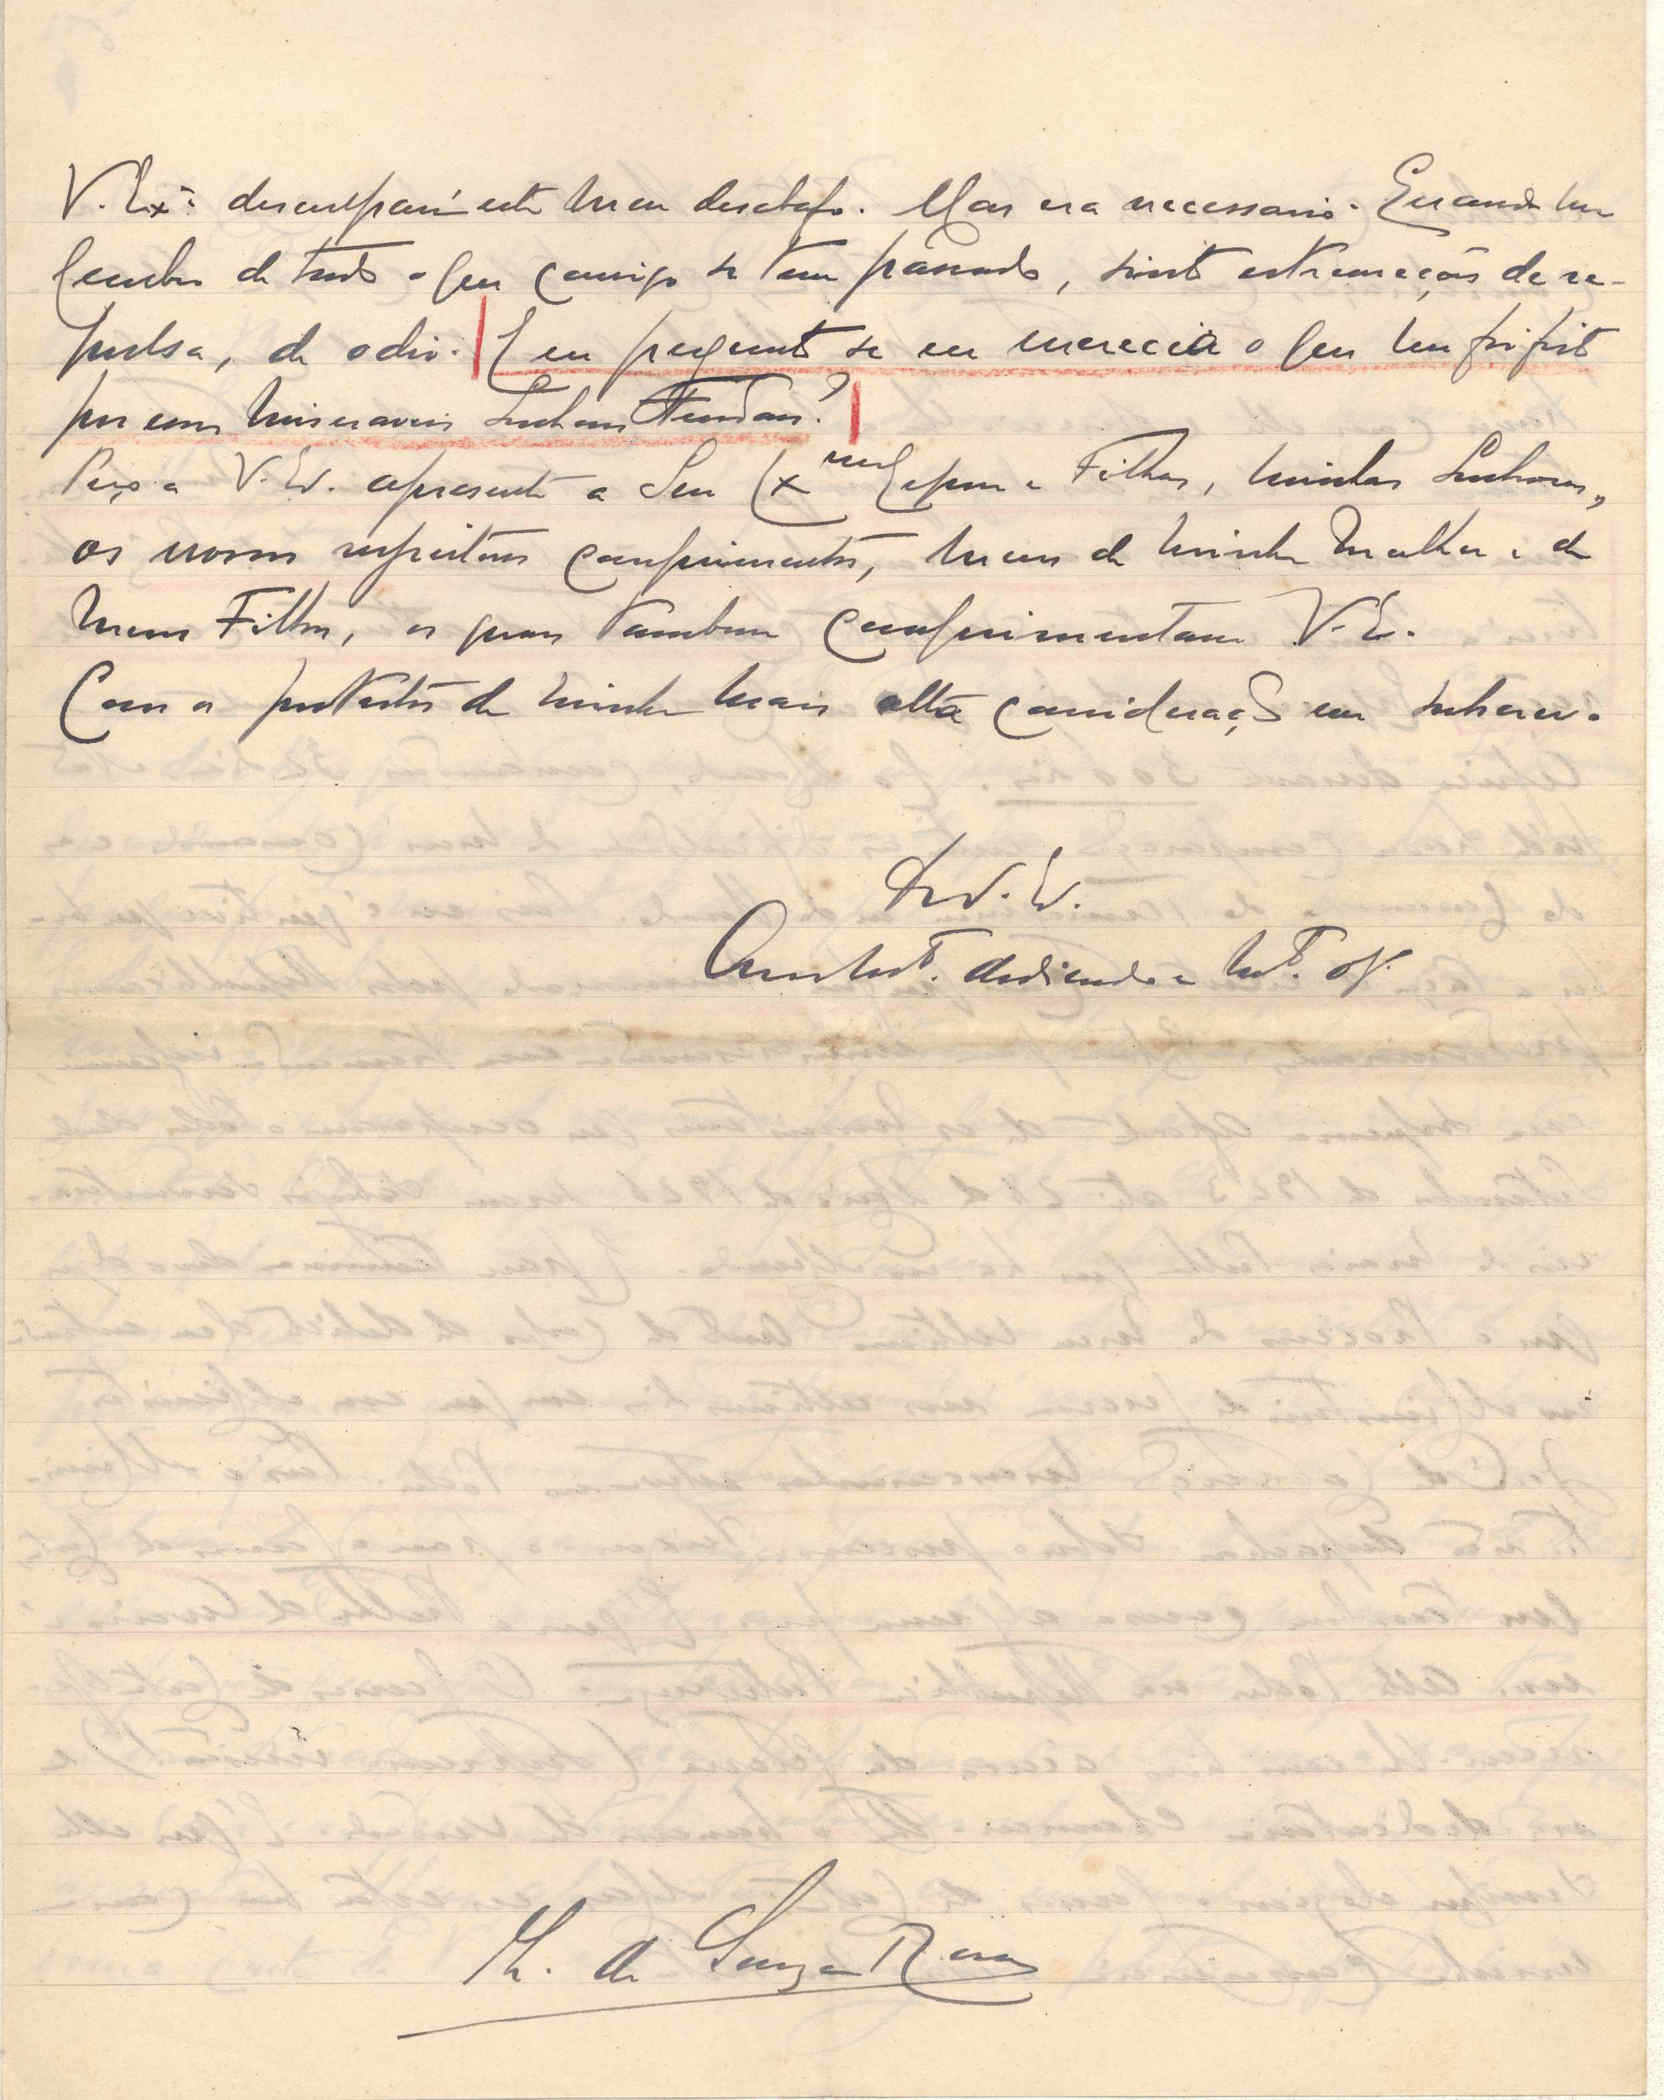 V. Exª desculpará este meu desabafo. Mas era necessario. Quando me
lembro de tudo o que comigo se tem passado, sinto estremeções de re-
pulsa, de odio. E eu pergunto se eu merecia o que me foi feito
por esses miseraveis
Peço a V. Ex. apresente a Sua Exma Esposa e Filhas, minhas Senhoras,
os nossos respeitosos cumprimentos, meus de minha mulher e de
meus Filhos, os quaes tambem cumprimentam V. E.
Com os protestos de minha mais alta consideração me subscrevo
De V. Ex.
Amº mtº. dedicado e mtº. obº.
de Souza Rosa